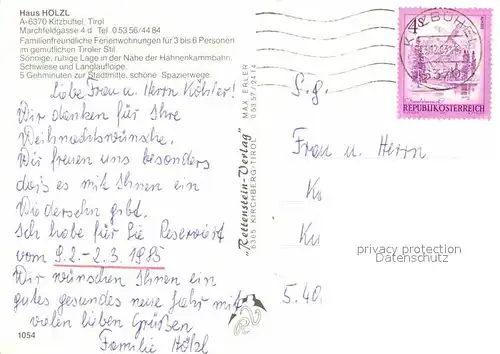 Haus HÖLZL
A-6370 Kitzbühel, Tirol
Marchfeldgasse 4 d Tel. 0 53 56/44 84
Familienfreundliche Ferienwohnungen für 3 bis 6 Personen
im gemütlichen Tiroler Stil
Sonnige, ruhige Lage in der Nähe der Hahnenkammbahn,
Schiwiese und Langlaufloipe.
5 Gehminuten zur Stadtmitte, schöne Spazierwege.
Liebe Frau u. Herrn Köhler!
Wir danken für Ihre
Weihnachtswünsche.
Wir freuen uns besonders
dass es mit Ihnen ein
Wiedersehn gibt.
Ich habe für Sie Reserviert
vom 9.2.-2.3.1985
Wir wünschen Ihnen ein
gutes gesundes neue Jahr mit
vielen lieben Grüßen
Familie Hölzl
1054
"Rettenstein-Verlag"
6365 KIRCHBERG-TIROL
MAX ERLER
05357/3414
KITZBÜHEL
REPUBLIK ÖSTERREICH
S.g.
Frau u. Herrn
Kö
Kö
5.40
privacy protection
DETAILS